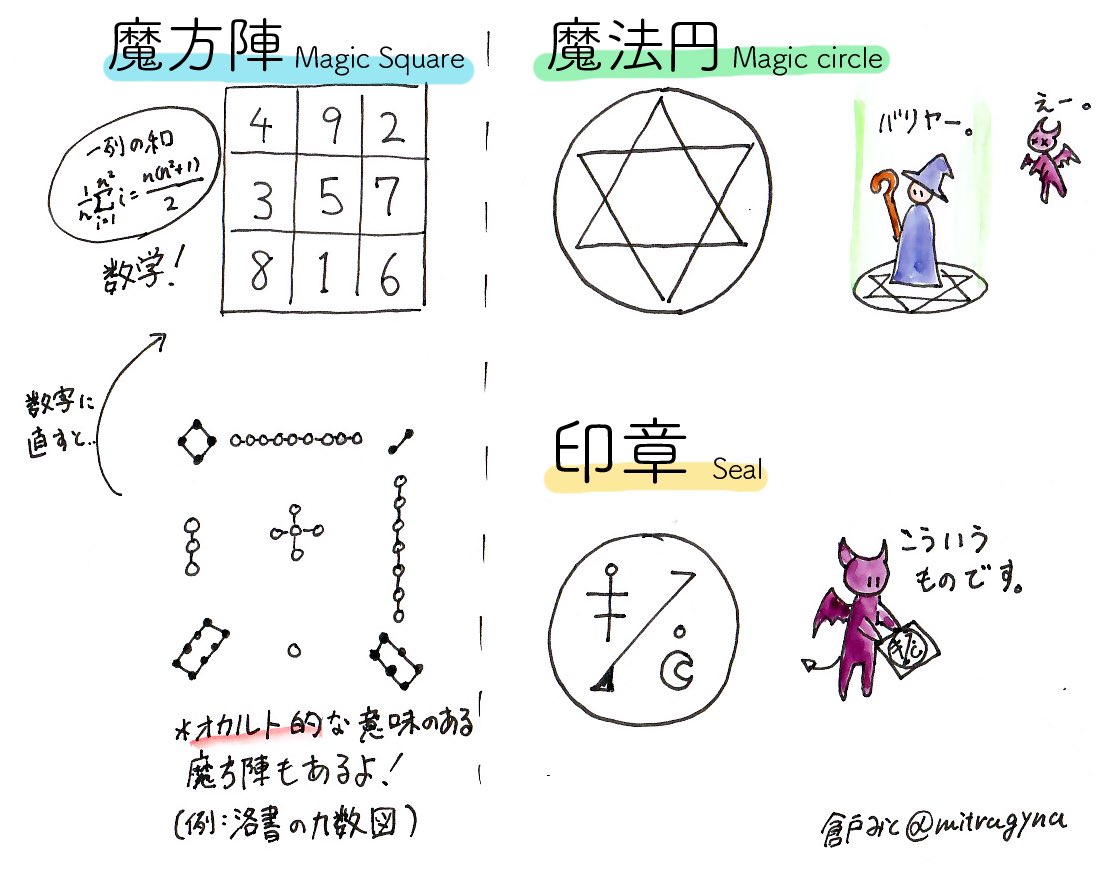 魔方陣 Magic Square
一列の和
1/n Σ[i=1→n²] i = n(n²+1)/2
数学!
4 9 2
3 5 7
8 1 6
数字に
直すと..
*オカルト的な意味のある
魔方陣もあるよ!
(例:洛書の九数図)
魔法円 Magic circle
バリヤー。
えー。
印章 Seal
こういう
ものです。
倉戸みと@mitragyna